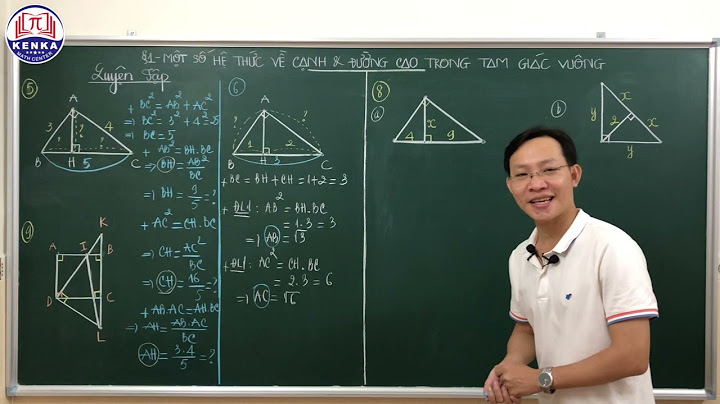 KENKA
MATH CENTER
§1- MỘT SỐ HỆ THỨC VỀ CẠNH & ĐƯỜNG CAO TRONG TAM GIÁC VUÔNG
Luyện Tập
5
A
3
4
?
B
H
5
C
+ BC² = AB² + AC²
⇒ BC² = 3² + 4² = 25
⇒ BC = 5
+ AB² = BH.BC
⇒ BH = AB²/BC
⇒ BH = 9/5 = ?
+ AC² = CH.BC
⇒ CH = AC²/BC
⇒ CH = 16/5 = ?
+ AB.AC = AH.BC
⇒ AH = AB.AC/BC
AH = 3.4/5 = ?
9
K
A
I
B
D
C
L
6
A
?
?
1
2
B
H
3
C
+ BC = BH + CH = 1+2 = 3
+ ĐL1: AB² = BH.BC
= 1.3 = 3
⇒ AB = √3
+ ĐL1: AC² = CH.BC
= 2.3 = 6
⇒ AC = √6
8
a
4
x
9
b
y
x
2
x
y